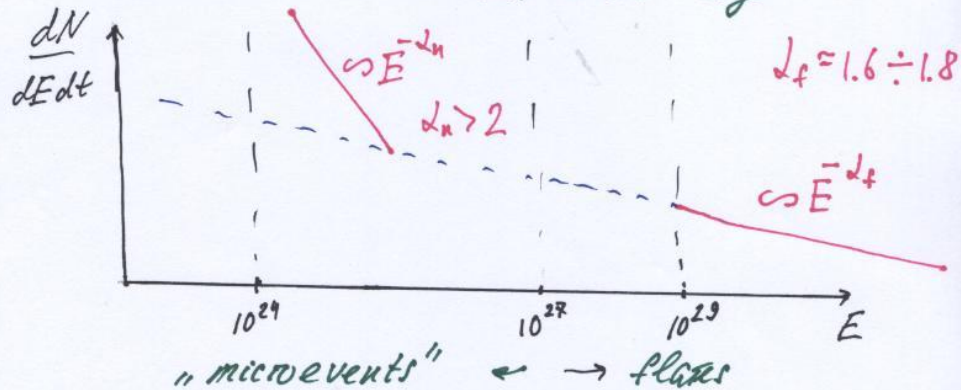 dN
dE dt
∽E^-αn
αn>2
αf ≈ 1.6 ÷ 1.8
∽E^-αf
10^24
10^27
10^29
E
„microevents" ← → flares